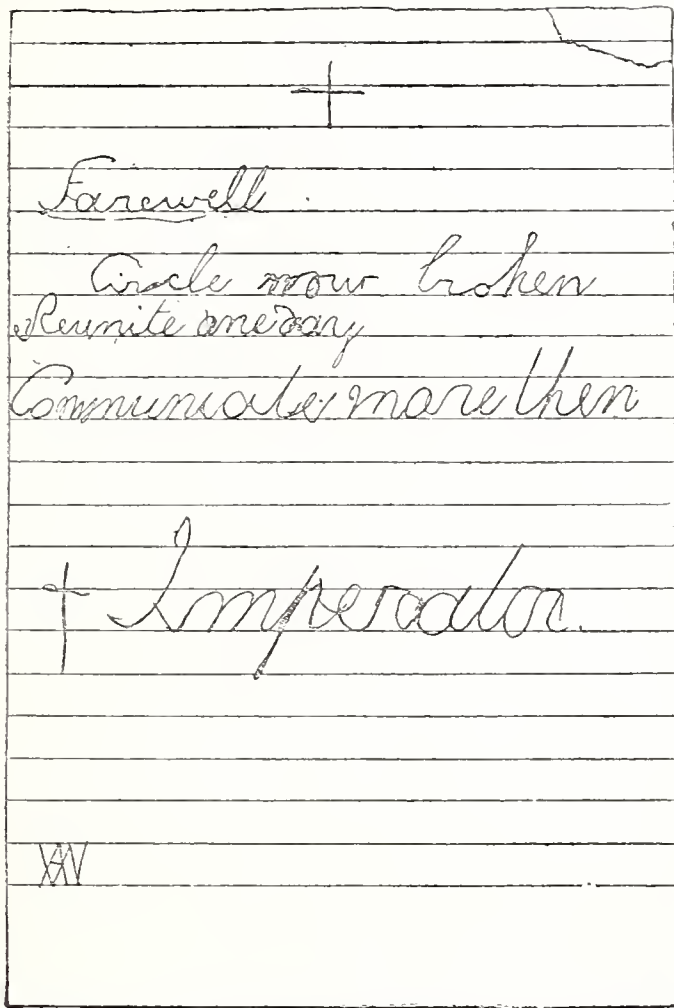 Farewell.
Circle now broken
Reunite one day
Communicate more then
† Imperator.